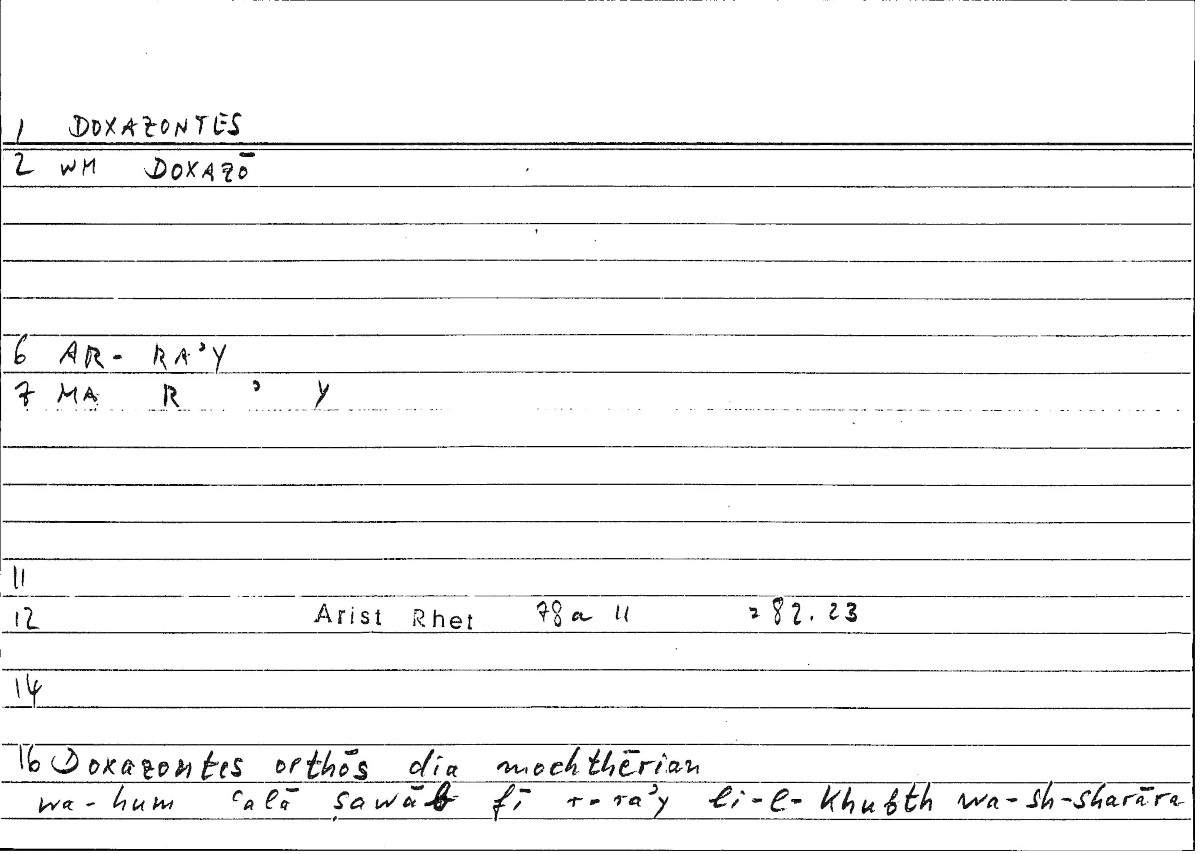 1 DOXAZONTES
2 WM DOXAZŌ
6 AR- RA’Y
7 MA R ’ Y
11
12 Arist Rhet 78a 11 = 82.23
14
16 Doxazontes orthōs dia mochthērian
wa-hum ʿalā ṣawāb fī r-ra’y li-l-khubth wa-sh-sharāra